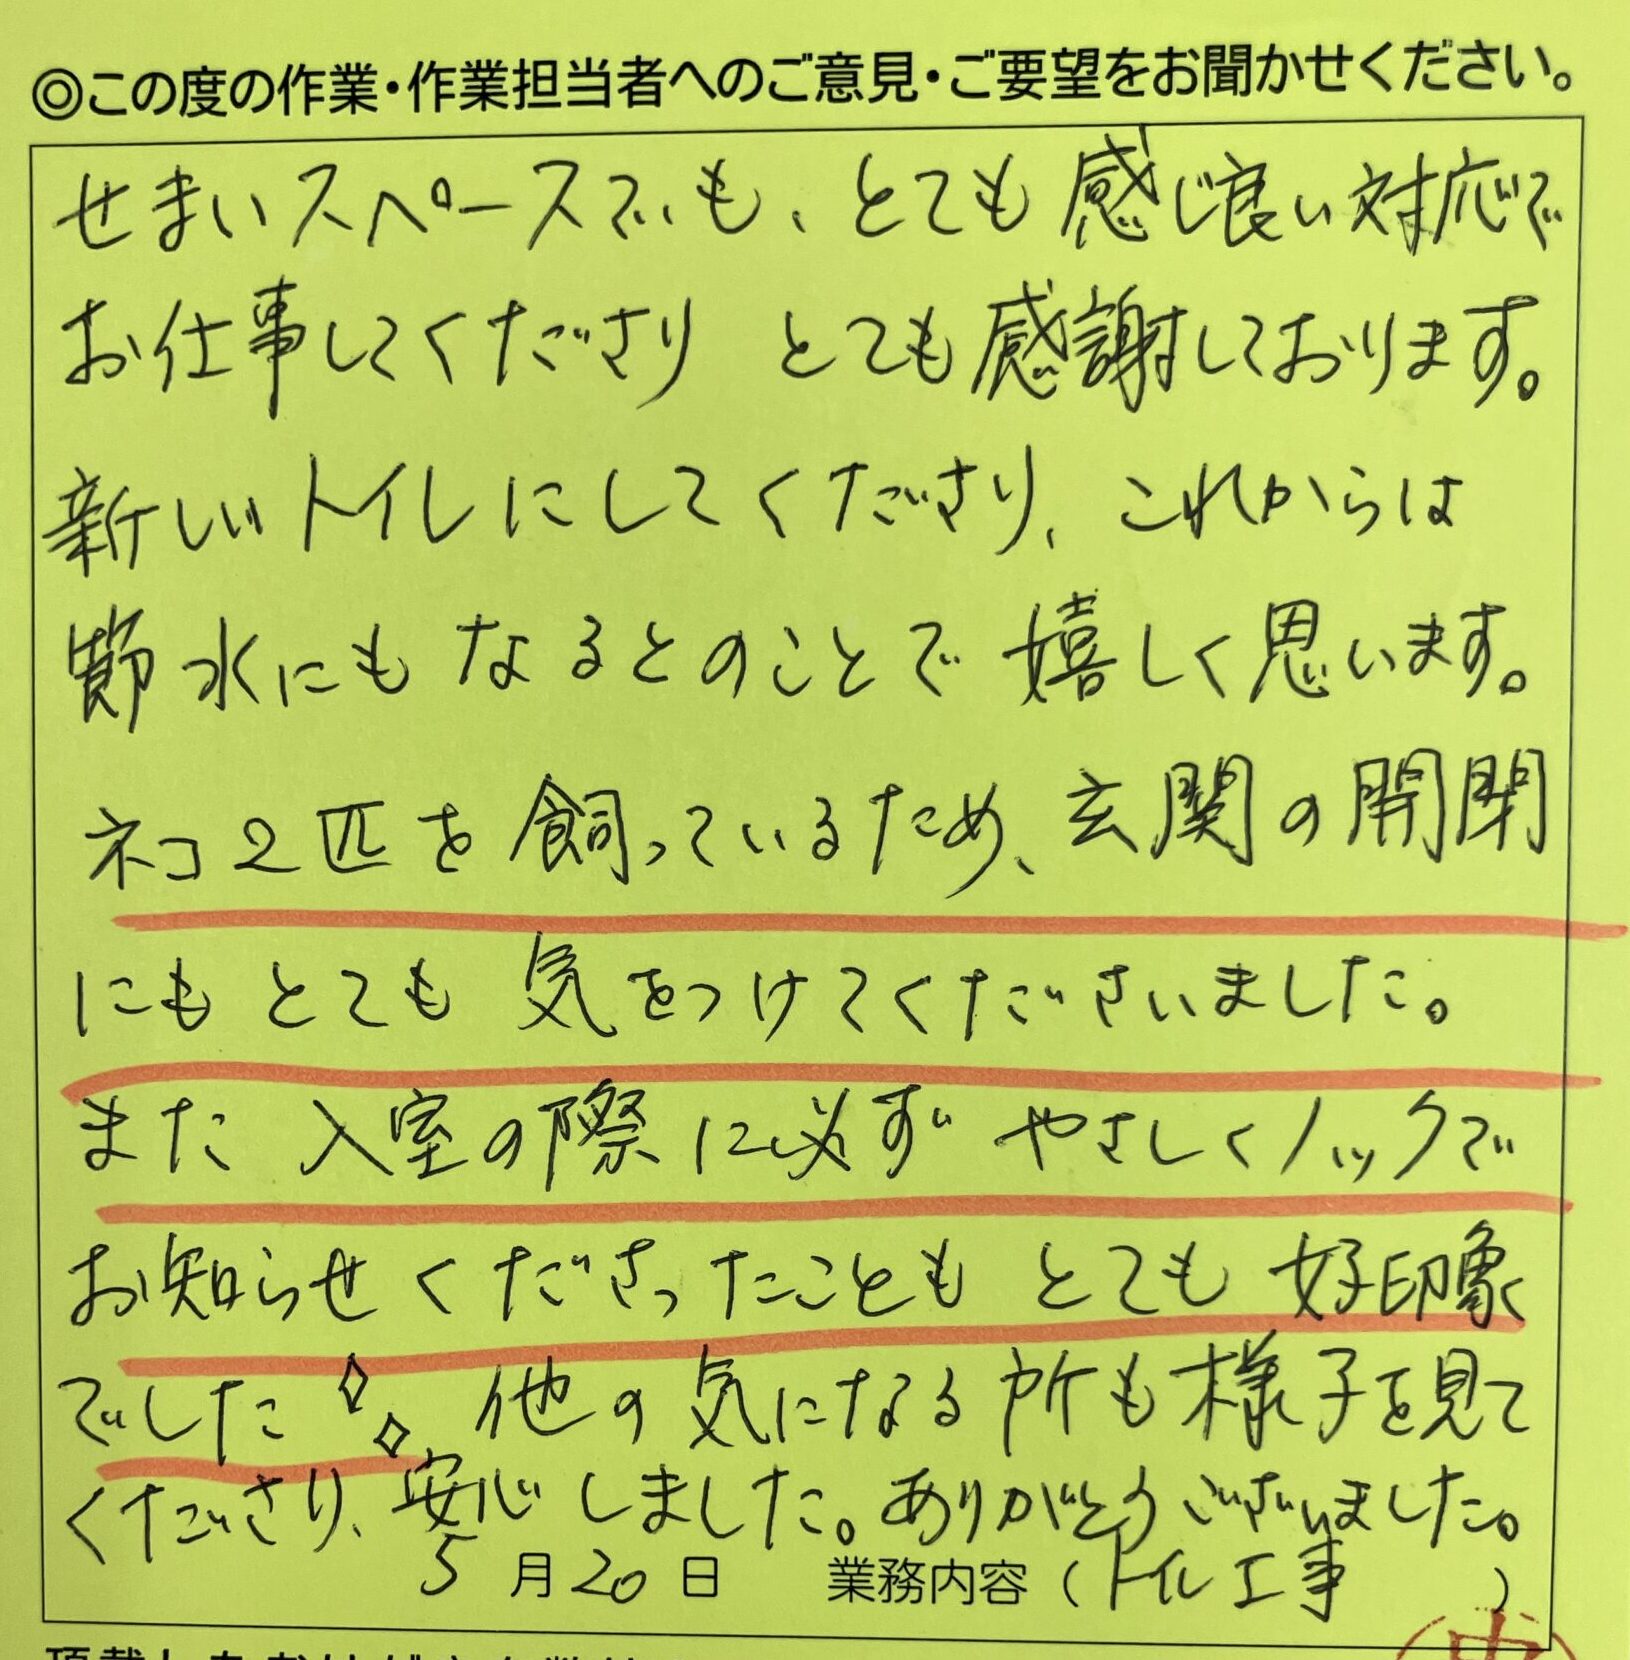 ◎この度の作業・作業担当者へのご意見・ご要望をお聞かせください。
せまいスペースでも、とても感じ良い対応で
お仕事してくださり とても感謝しております。
新しいトイレにしてくださり、これからは
節水にもなるとのことで嬉しく思います。
ネコ2匹を飼っているため、玄関の開閉
にもとても気をつけてくださいました。
また入室の際に必ずやさしくノックで
お知らせくださったこともとても好印象
でした 他の気になる所も様子を見て
くださり、安心しました。ありがとうございました。
5月20日 業務内容(トイレ工事)